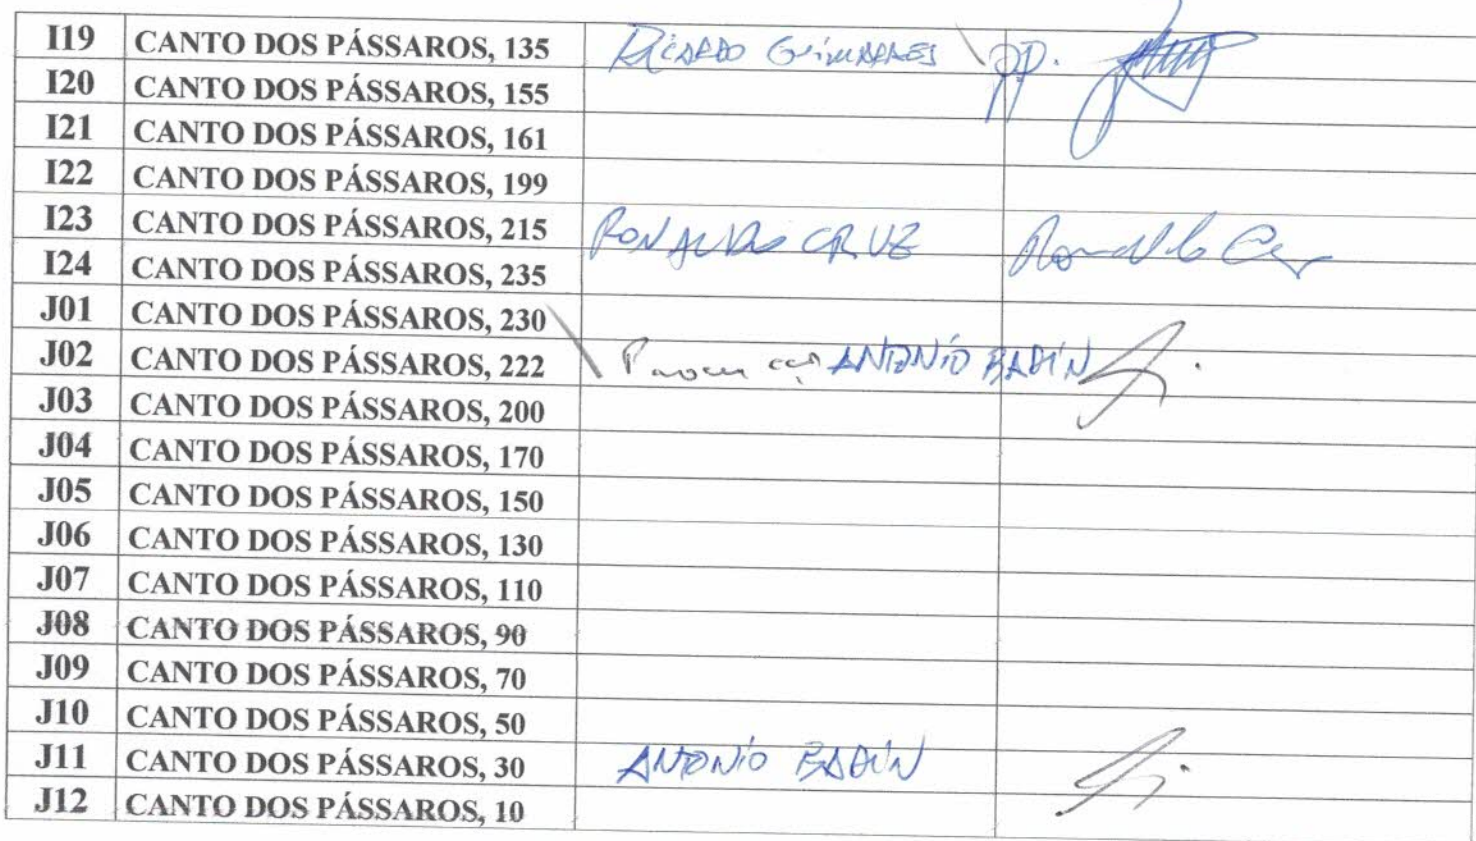 I19 CANTO DOS PÁSSAROS, 135 RICARDO GUIMARAES pp.
I20 CANTO DOS PÁSSAROS, 155
I21 CANTO DOS PÁSSAROS, 161
I22 CANTO DOS PÁSSAROS, 199
I23 CANTO DOS PÁSSAROS, 215 RONALDO CRUZ
I24 CANTO DOS PÁSSAROS, 235
J01 CANTO DOS PÁSSAROS, 230
J02 CANTO DOS PÁSSAROS, 222 ANTONIO
J03 CANTO DOS PÁSSAROS, 200
J04 CANTO DOS PÁSSAROS, 170
J05 CANTO DOS PÁSSAROS, 150
J06 CANTO DOS PÁSSAROS, 130
J07 CANTO DOS PÁSSAROS, 110
J08 CANTO DOS PÁSSAROS, 90
J09 CANTO DOS PÁSSAROS, 70
J10 CANTO DOS PÁSSAROS, 50
J11 CANTO DOS PÁSSAROS, 30 ANTONIO
J12 CANTO DOS PÁSSAROS, 10